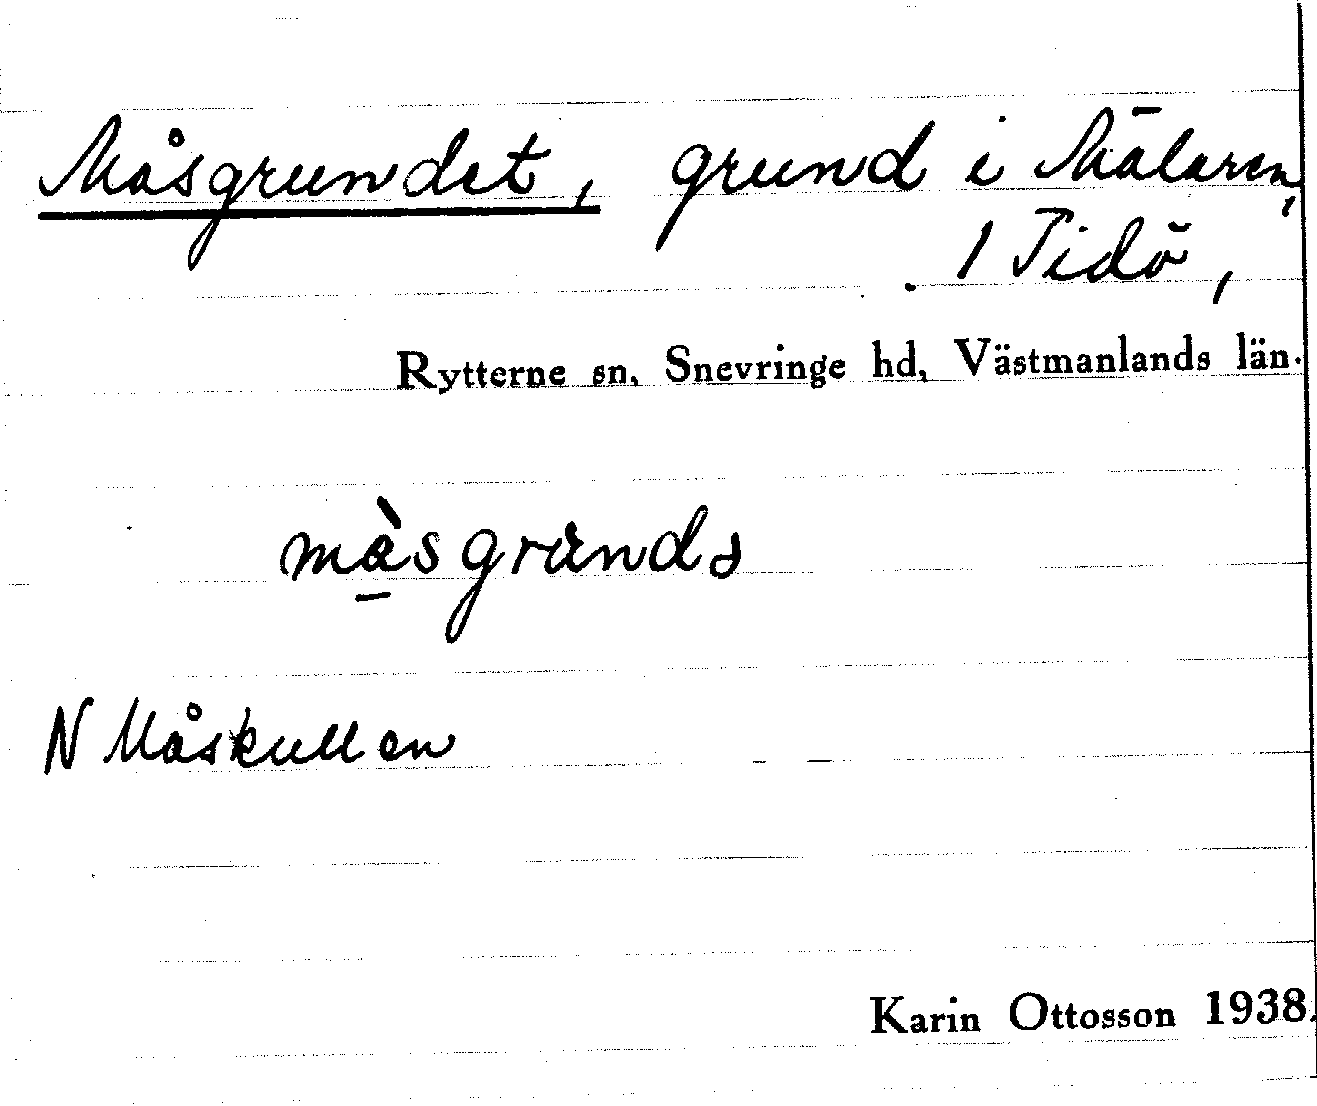 Måsgrundet, grund i Mälaren,
1 Tidö,
Rytterne sn, Snevringe hd, Västmanlands län.
N Måskullen
Karin Ottosson 1938.